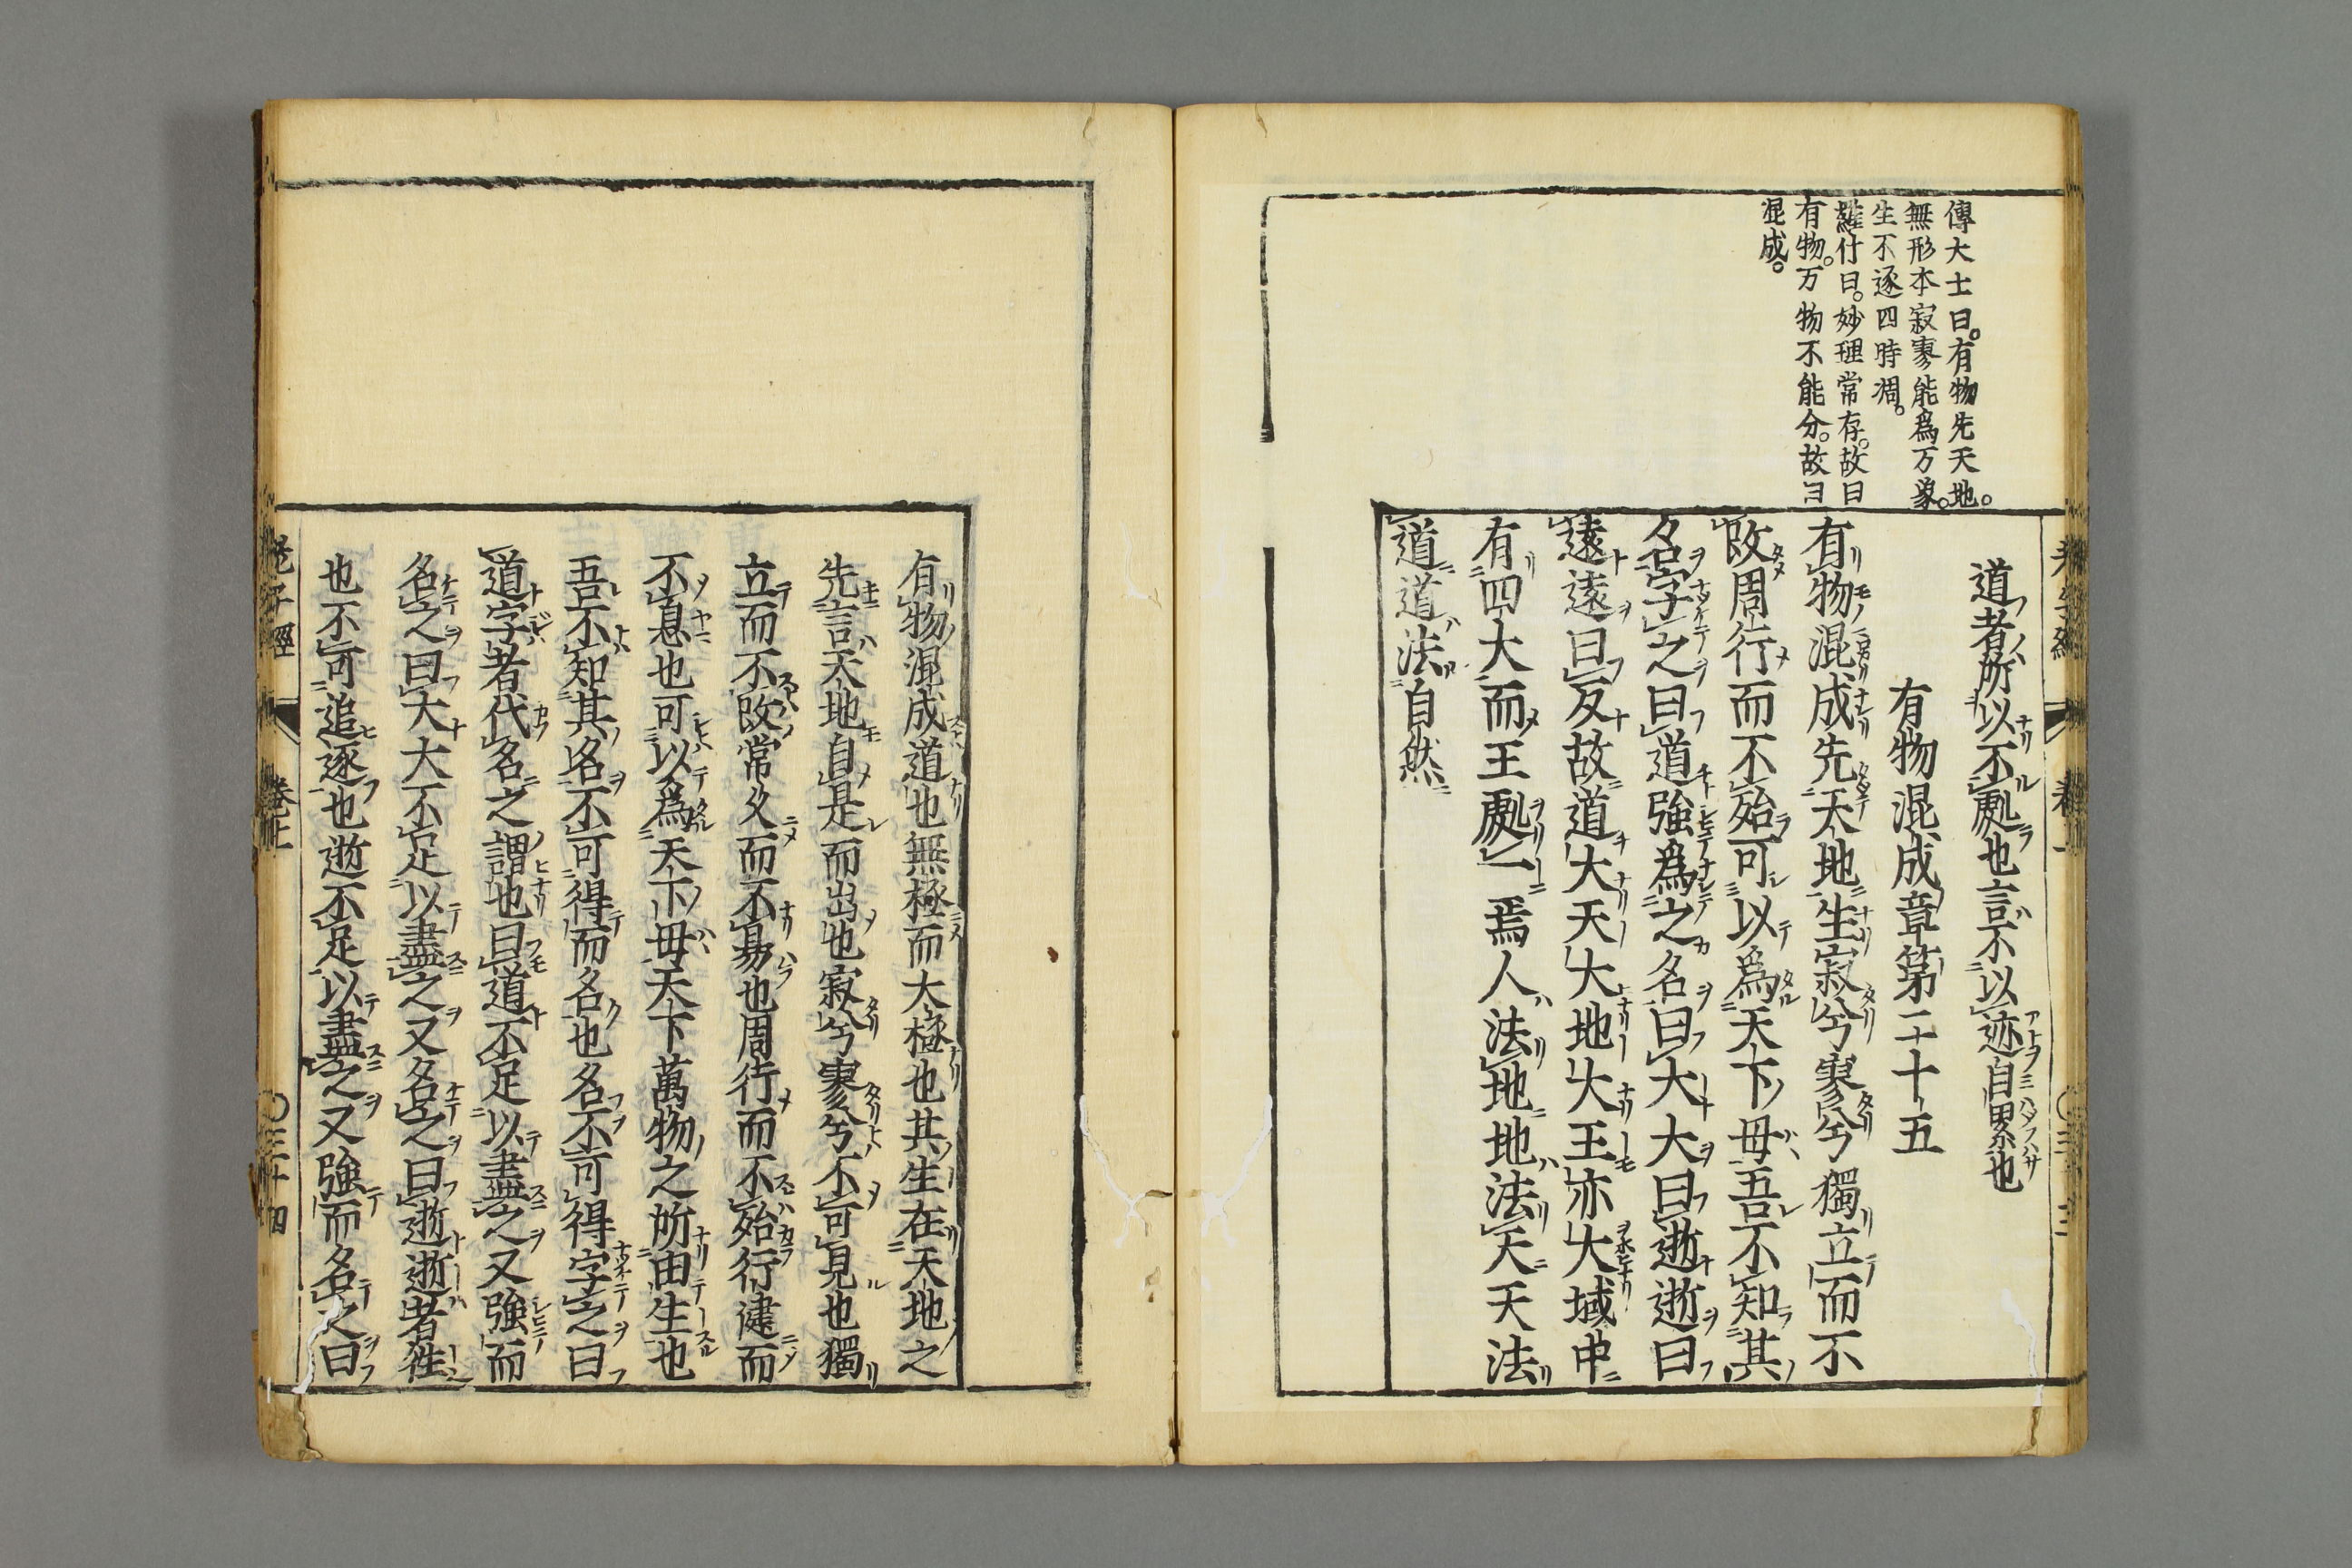 傳大士曰。有物先天地。
無形本寂寥能爲万象。
生不逐四時凋。
羅什曰。妙理常存。故曰
有物。万物不能分。故曰
混成。
道者所以不處也言不以迹自累也
有物混成章第二十五
有物混成先天地生寂兮寥兮獨立而不
改周行而不殆可以爲天下母吾不知其
名字之曰道強爲之名曰大大曰逝逝曰
遠遠曰反故道大天大地大王亦大域中
有四大而王處一焉人法地地法天天法
道道法自然
有物混成道也無極而大極也其生在天地之
先言天地自是而出也寂兮寥兮不可見也獨
立而不改常久而不易也周行而不殆行健而
不息也可以爲天下母天下萬物之所由生也
吾不知其名不可得而名也名不可得字之曰
道字者代名之謂也曰道不足以盡之又強而
名之曰大大不足以盡之又名之曰逝逝者往
也不可追逐也逝不足以盡之又強而名之曰
老子經 卷上 〇三十四